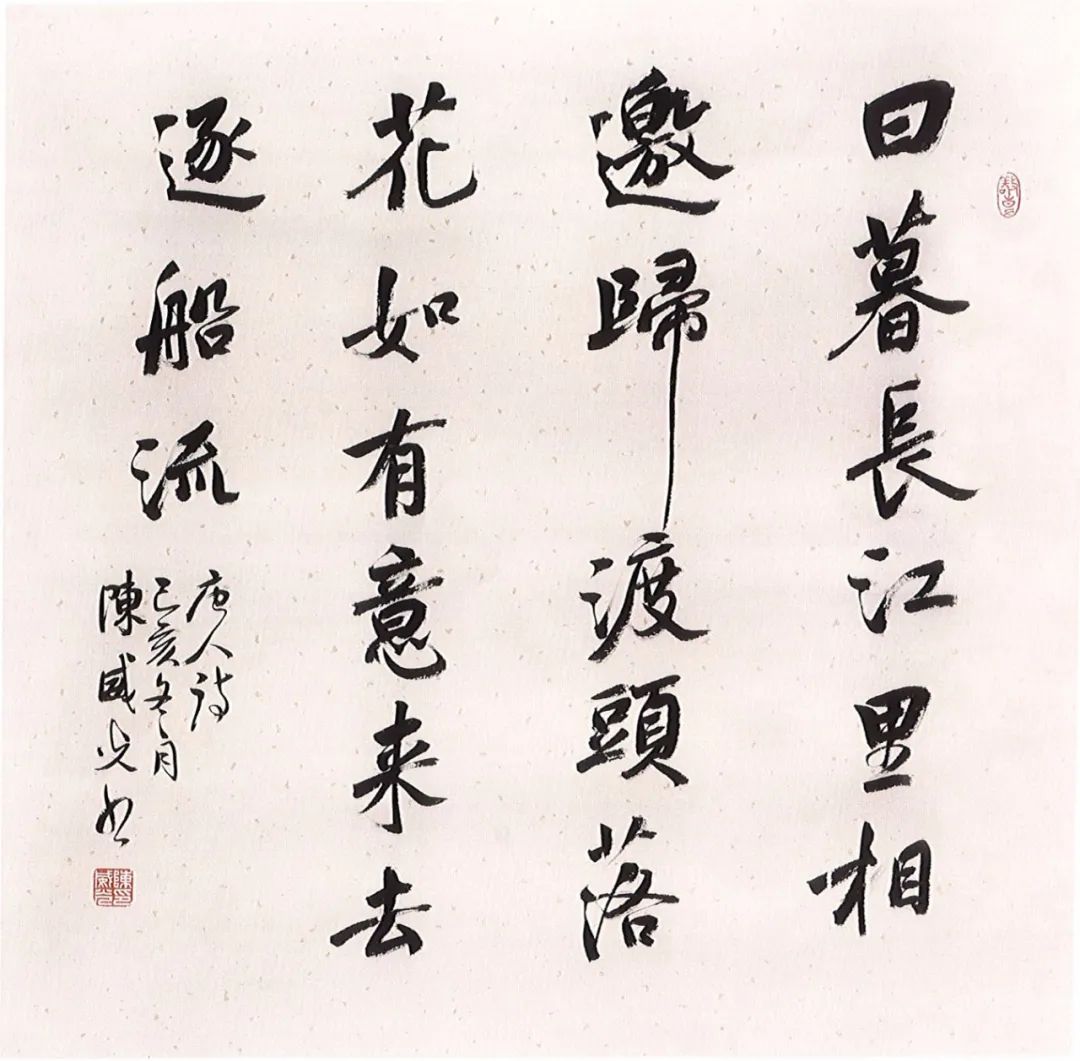 日暮長江里相
邀歸渡頭落
花如有意来去
逐船流
唐人詩
己亥冬月
陳威光书
陳威光印